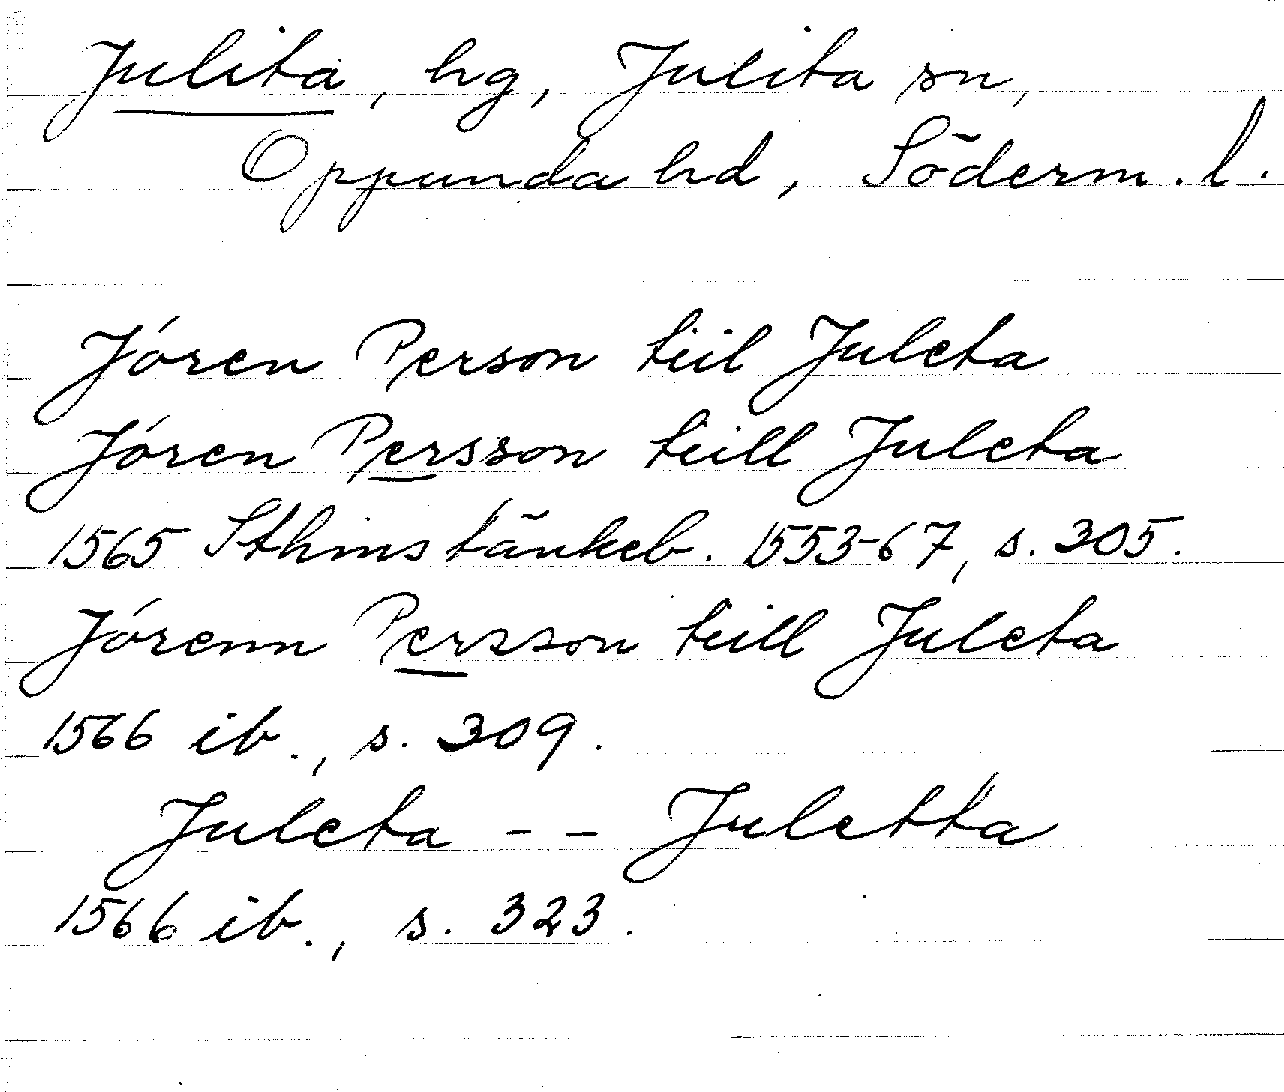 Julita, hg, Julita sn,
Oppunda hd, Söderm. l.
Jóren Person tiil Juleta
Jóren Persson tiill Juleta
1565 Sthms tänkeb. 1553-67, s. 305.
Jórenn Persson tiill Juleta
1566 ib., s. 309.
Juleta -- Juletta
1566 ib., s. 323.